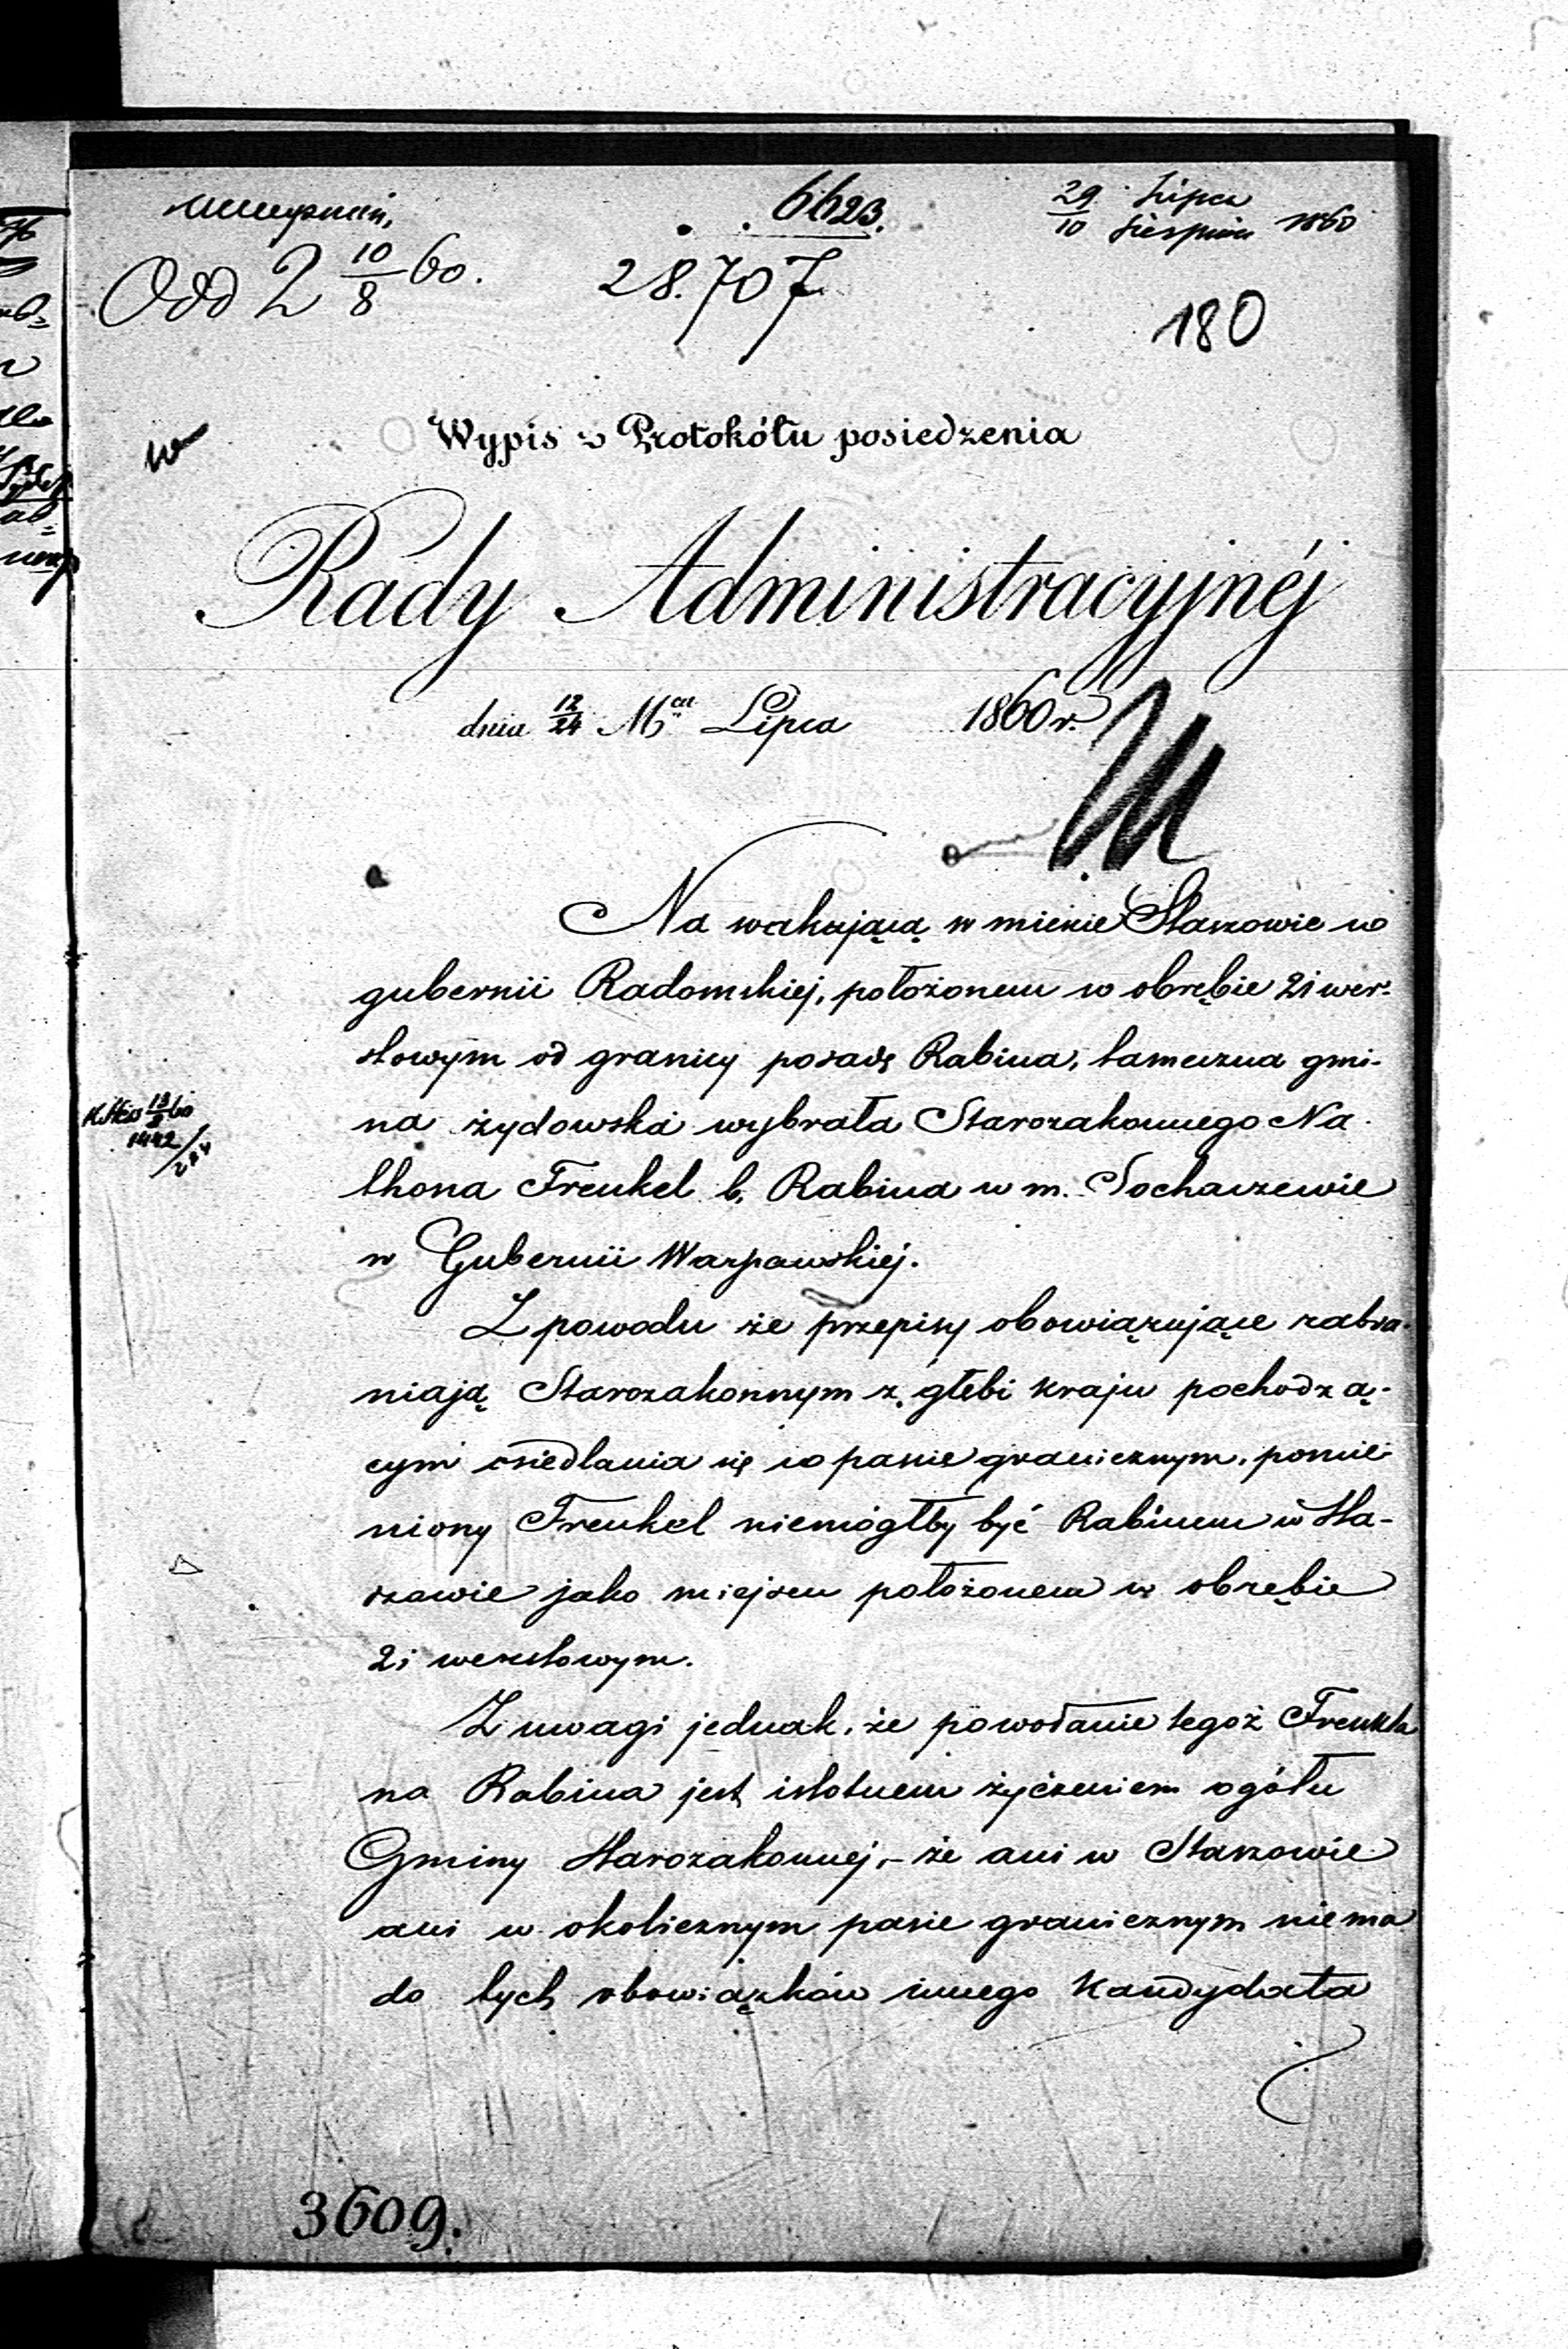 6623.
29 Lipca
10 Sierpnia 1860
Odd 2 10/8 60.
28.707
180
Wypis z Protokółu posiedzenia
Rady Administracyjnéj
dnia 12/24 Mca Lipca 1860 r.
Na wakującą w mieście Staszowie w
gubernii Radomskiej, położonem w obrębie 21 wer-
stowym od granicy posadę Rabina, tameczna gmi-
na żydowska wybrała Starozakonnego Na-
thona Frenkel b. Rabina w m. Sochaczewie
w Gubernii Warszawskiej.
Z powodu że przepisy obowiązujące zabra-
niają Starozakonnym z głębi kraju pochodzą-
cym osiedlania się w pasie granicznym, pomie-
niony Frenkel niemógłby być Rabinem w Sta-
szowie jako miejscu położonem w obrębie
21 werstowym.
Z uwagi jednak, że powołanie tegoż Frenkla
na Rabina jest istotnem życzeniem ogółu
Gminy Starozakonnej, – że ani w Staszowie
ani w okolicznym pasie granicznym niema
do tych obowiązków innego Kandydata
1442
3609.